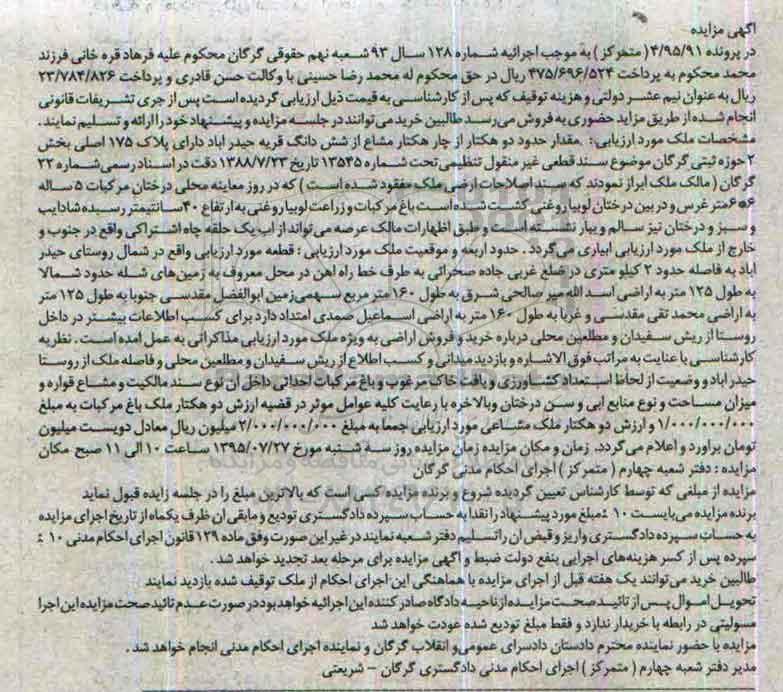 آگهی مزایده
در پرونده ۴/۹۵/۹۱( متمرکز ) به موجب اجرائیه شماره ۱۲۸ سال ۹۳ شعبه نهم حقوقی گرگان محکوم علیه فرهاد قره خانی فرزند
محمد محکوم به پرداخت ۴۷۵/۶۹۶/۵۲۴ ریال در حق محکوم له محمد رضا حسینی با وکالت حسن قادری و پرداخت ۲۳/۷۸۴/۸۲۶
ریال به عنوان نیم عشر دولتی و هزینه توقیف که پس از کارشناسی به قیمت ذیل ارزیابی گردیده است پس از جری تشریفات قانونی
انجام شده از طریق مزاید حضوری به فروش می رسد طالبین خرید می توانند در جلسه مزایده و پیشنهاد خود را ارائه و تسلیم نمایند .
مشخصات ملک مورد ارزیابی: .مقدار حدود دو هکتار از چار هکتار مشاع از شش دانگ قریه حیدر اباد دارای پلاک ۱۷۵ اصلی بخش
۲ حوزه ثبتی گرگان موضوع سند قطعی غیر منقول تنظیمی تحت شماره ۱۳۵۴۵ تاریخ ۱۳۸۸/۷/۲۳ دقت در اسناد رسمی شماره ۲۲
گرگان ( مالک ملک ابراز نمودند که سند اصلاحات ارضی ملک مفقود شده است ) که در روز معاینه محلی درختان مرکبات ۵ ساله
۶*۶ متر غرس و در بین درختان لوبیا روغنی کشت شده است باغ مرکبات و زراعت لوبیا روغنی به ارتفاع ۴۰ سانتیمتر رسیده شادایب
و سبز و درختان نیز سالم و ببار نشسته است و طبق اظهارات مالک عرصه می تواند از اب یک حلقه چاه اشتراکی واقع در جنوب و
خارج از ملک مورد ارزیابی ابیاری می گردد . حدود اربعه و موقعیت ملک مورد ارزیابی : قطعه مورد ارزیابی واقع در شمال روستای حیدر
اباد به فاصله حدود ۲ کیلو متری در ضلع غربی جاده صحرائی به طرف خط راه اهن در محل معروف به زمین های شله حدود شمالا
به طول ۱۲۵ متر به اراضی اسد الله میر صالحی شرق به طول ۱۶۰ متر مربع سهمی زمین ابوالفضل مقدسی جنوبا به طول ۱۲۵ متر
به اراضی محمد تقی مقدسی و غربا به طول ۱۶۰ متر به اراضی اسماعیل صمدی امتداد دارد برای کسب اطلاعات بیشتر در داخل
روستا از ریش سفیدان و مطلعین محلی درباره خرید و فروش اراضی به ویژه ملک مورد ارزیابی مذاکراتی به عمل امده است . نظریه
کارشناسی با عنایت به مراتب فوق الاشاره و بازدید میدانی و کسب اطلاع از ریش سفیدان و مطلعین محلی و فاصله ملک از روستا
حیدر اباد و وضعیت از لحاظ استعداد کشاورزی و بافت خاک مرغوب و باغ مرکبات احداثی داخل ان نوع سند مالکیت و مشاع قواره و
میزان مساحت و نوع منابع ابی و سن درختان وبالاخره با رعایت کلیه عوامل موثر در قضیه ارزش دو هکتار ملک باغ مرکبات به مبلغ
۱/۰۰۰/۰۰۰/۰۰۰ و ارزش دو هکتار ملک مشاعی مورد ارزیابی جمعا به مبلغ ۲/۰۰۰/۰۰۰/۰۰۰ میلیون ریال معادل دویست میلیون
تومان براورد و اعلام می گردد. زمان و مکان مزایده زمان مزایده روز سه شنبه مورخ ۱۳۹۵/۰۷/۲۷ ساعت ۱۰ الی ۱۱ صبح مکان
مزایده : دفتر شعبه چهارم ( متمرکز ) اجرای احکام مدنی گرگان
مزایده از مبلغی که توسط کارشناس تعیین گردیده شروع و برنده مزایده کسی است که بالاترین مبلغ را در جلسه زایده قبول نماید
برنده مزایده می بایست ۱۰ ٪ مبلغ مورد پیشنهاد را نقدا به حساب سپرده دادگستری تودیع و مابقی ان ظرف یکماه از تاریخ اجرای مزایده
به حساب سپرده دادگستری واریز و قبض ان را تسلیم دفتر شعبه نمایند در غیر این صورت وفق ماده ۱۲۹ قانون اجرای احکام مدنی ۱۰ ٪
سپرده پس از کسر هزینه های اجرایی بنفع دولت ضبط و آگهی مزایده برای مرحله بعد تجدید خواهد شد .
طالبین خرید می توانند یک هفته قبل از اجرای مزایده با هماهنگی این اجرای احکام از ملک توقیف شده بازدید نمایند
تحویل اموال پس از تائید صحت مزایده از ناحیه دادگاه صادر کننده این اجرائیه خواهد بود در صورت عدم تائید صحت مزایده این اجرا
مسولیتی در رابطه با خریدار ندارد و فقط مبلغ تودیع شده عودت خواهد شد
مزایده با حضور نماینده محترم دادستان دادسرای عمومی و انقلاب گرگان و نماینده اجرای احکام مدنی انجام خواهد شد .
مدیر دفتر شعبه چهارم ( متمرکز ) اجرای احکام مدنی دادگستری گرگان – شریعتی